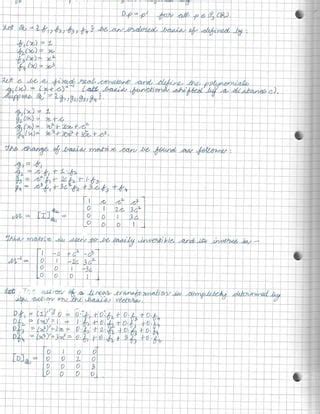 Dp = p' for all p ∈ P₃(R)
Let B = {f₁, f₂, f₃, f₄} be an ordered basis of defined by:
f₁(x) = 1
f₂(x) = x
f₃(x) = x²
f₄(x) = x³
Let c be a fixed real constant and define the polynomials
(all basis functions shifted by a distance c).
Suppose
g₁(x) = 1
g₂(x) = x + c
g₃(x) = x² + 2cx + c²
The change of basis matrix can be found as follows:
g₁ = f₁
g₂ = c f₁ + 1 f₂
g₃ = c² f₁ + 2c f₂ + 1 f₃
g₄ = c³ f₁ + 3c² f₂ + 3c f₃ + f₄
1 c c² c³
0 1 2c 3c²
0 0 1 3c
0 0 0 1
This matrix is seen to be easily invertible and its inverse is -
M⁻¹ =
1 -c +c² -c³
0 1 -2c 3c²
0 0 1 -3c
0 0 0 1
of a linear transformation is completely determined by
its action on the basis vectors.
Df₁ = (1)' = 0 = 0·f₁ + 0·f₂ + 0·f₃ + 0·f₄
Df₂ = (x)' = 1 = 1·f₁ + 0·f₂ + 0·f₃ + 0·f₄
Df₃ = (x²)' = 2x = 0·f₁ + 2·f₂ + 0·f₃ + 0·f₄
Df₄ = (x³)' = 3x² = 0·f₁ + 0·f₂ + 3·f₃ + 0·f₄
0 1 0 0
0 0 2 0
0 0 0 3
0 0 0 0